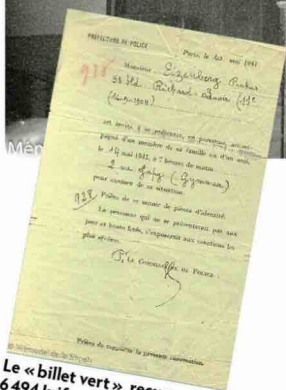 PRÉFECTURE DE POLICE
Paris, le 10 mai 1941
Monsieur
58 Bld Richard-Lenoir (11e)
est invité à se présenter, en personne, accompagné d'un membre de sa famille ou d'un ami,
le 14 mai 1941, à 7 heures du matin
2 rue Japy (Gymnase)
pour examen de sa situation.
928 Prière de se munir de pièces d'identité.
La personne qui ne se présenterait pas aux
jour et heure fixés, s'exposerait aux sanctions les
plus sévères.
LE COMMISSAIRE DE POLICE
Prière de rapporter la présente convocation.
Mém
© Mémorial de la Shoah
Le « billet vert »
6494